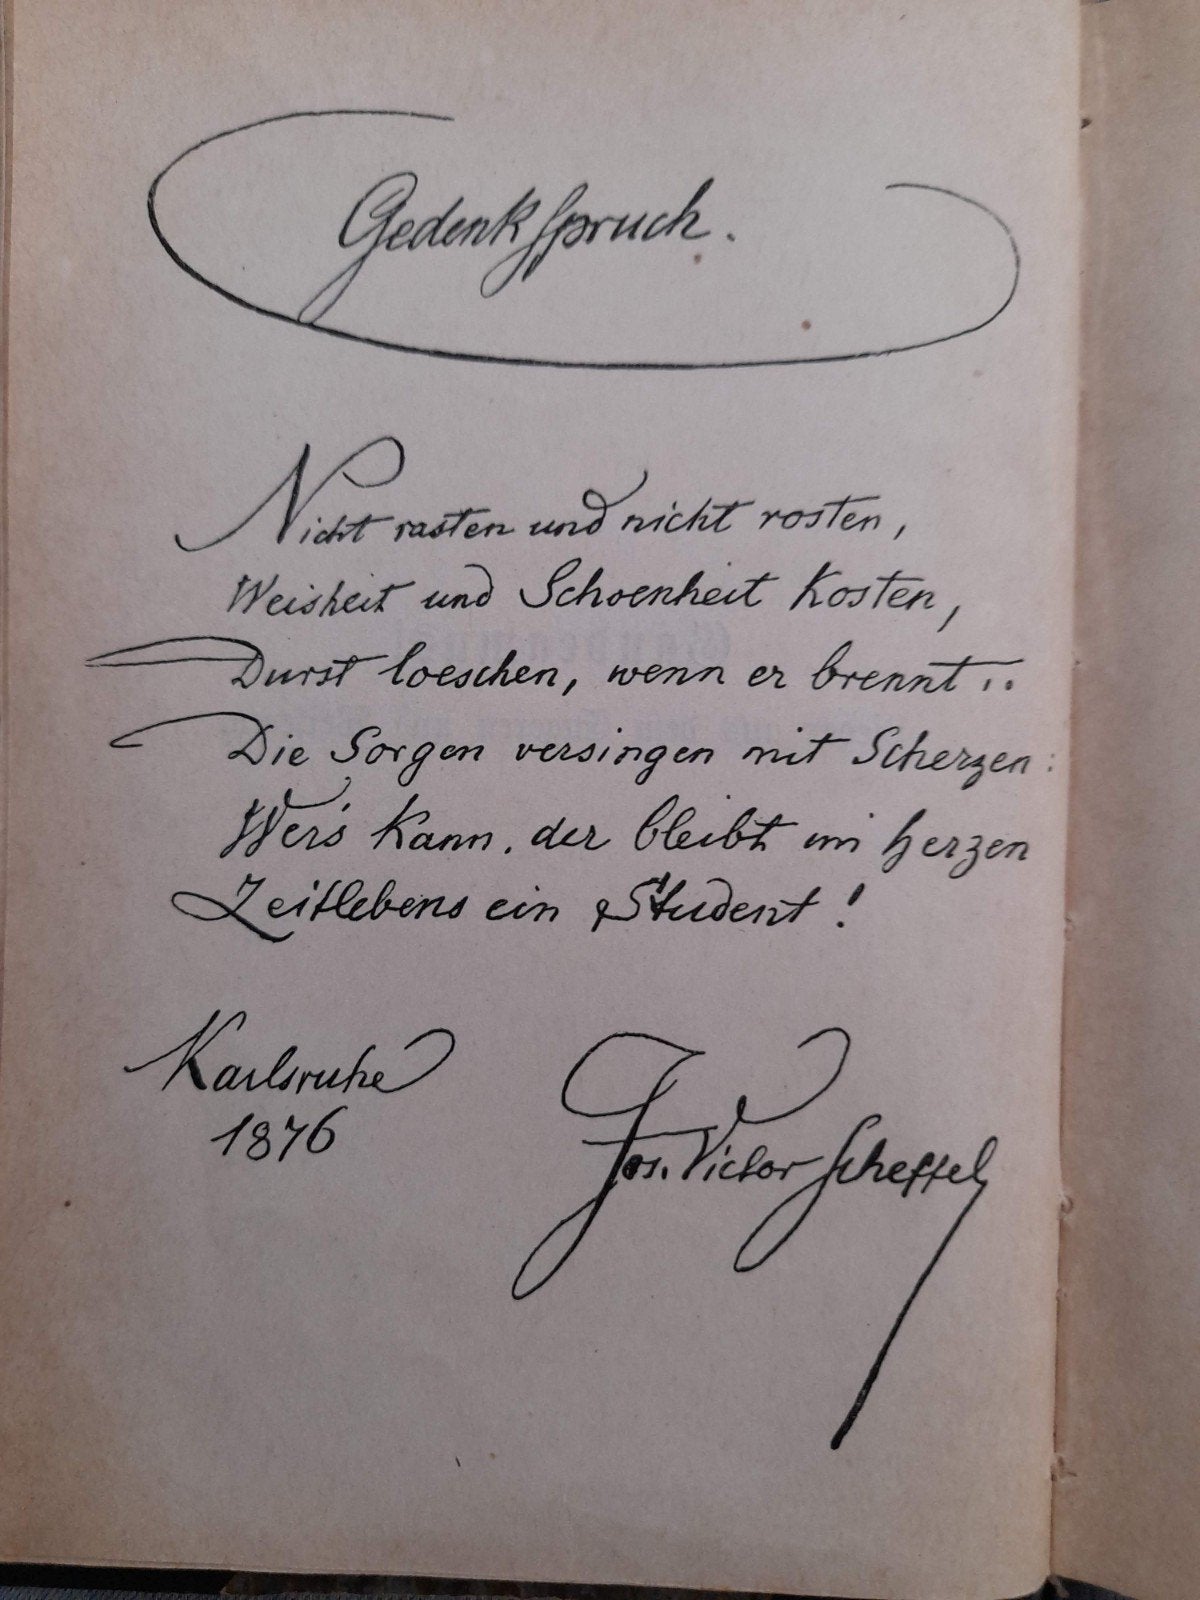 Gedenkspruch.
Nicht rasten und nicht rosten,
Weisheit und Schoenheit Kosten,
Durst loeschen, wenn er brennt..
Die Sorgen versingen mit Scherzen:
Wer's Kann, der bleibt im Herzen
Zeitlebens ein Student!
Karlsruhe
1876
Jos. Victor Scheffel